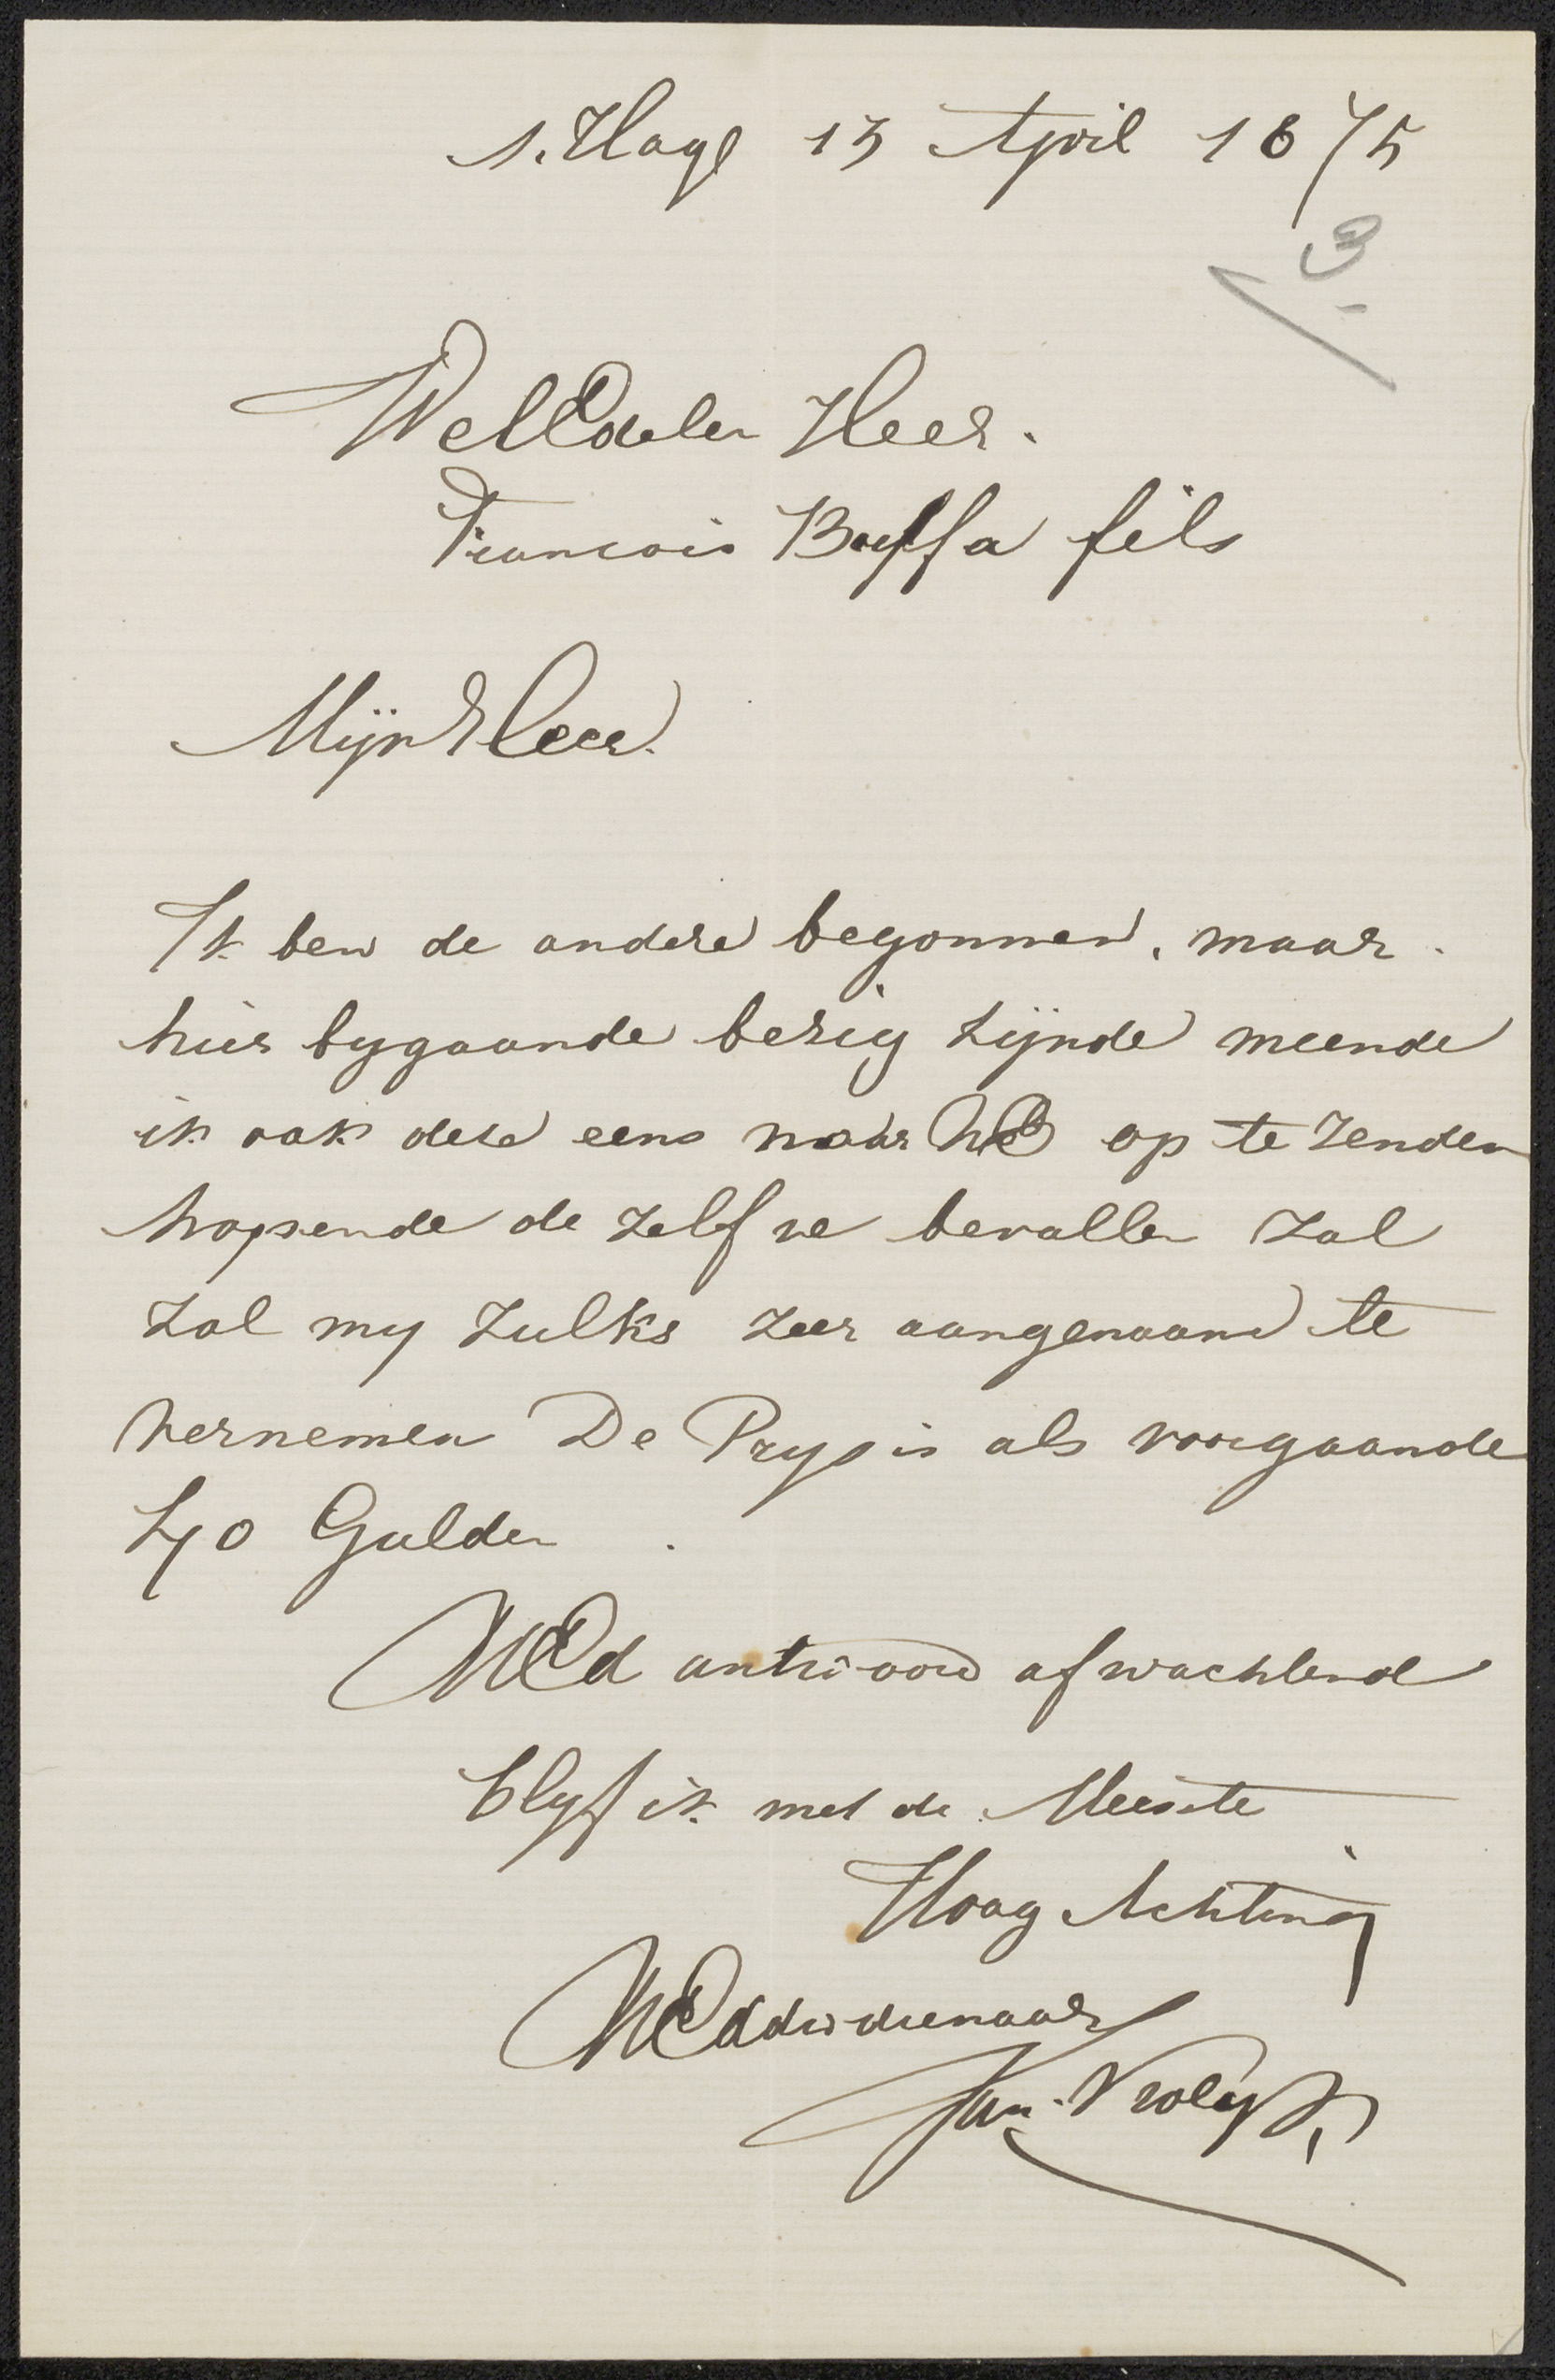 s. Hage 13 April 1875
3
WelEdelen Heer.
Francois Buffa fils
Mijn Heer.
Ik ben de andere begonnen, maar
hier bygaande bezig zijnde meende
ik ook deze eens naar UE op te zenden
hopsende de zelf ve bevallen zal
zal my zulks zeer aangenaam te
vernemen De Prys is als voorgaande
40 Gulden
UEd antwoord afwachtend
blyf ik met de Meeste
Hoog Achting
UEd dw dienaar
Jan Vrolyk